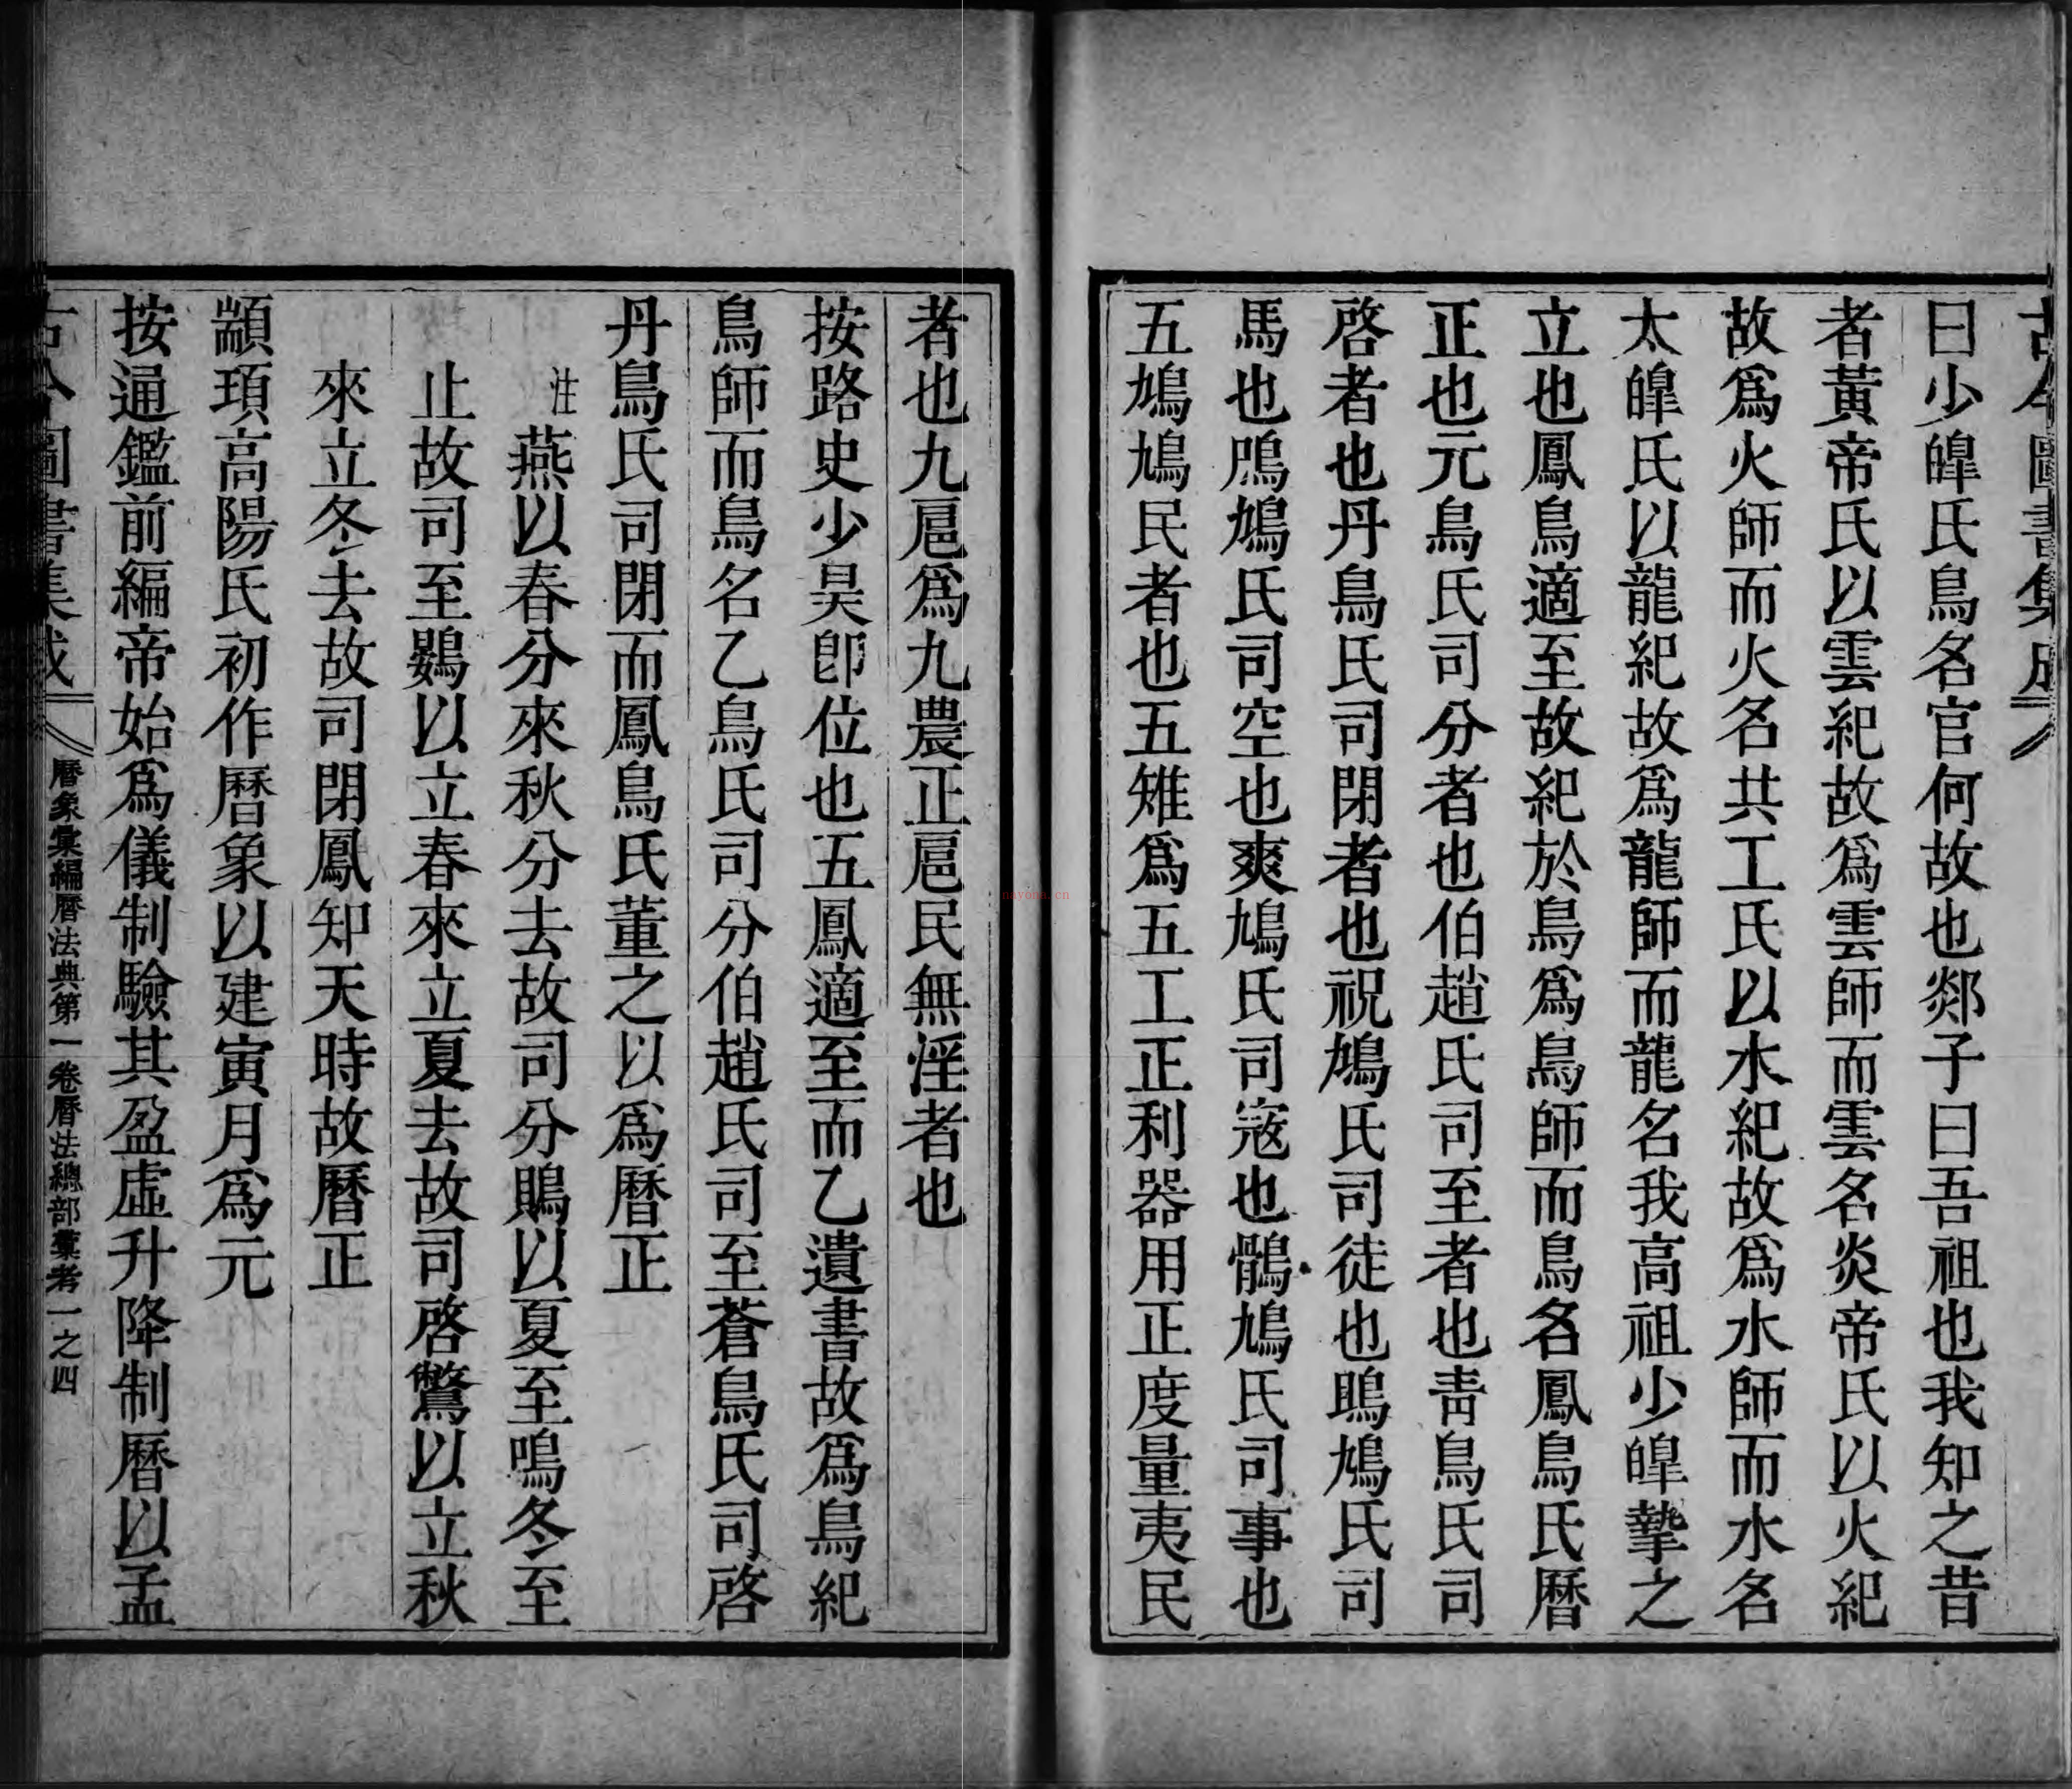 古今圖書集成
曰少皥氏鳥名官何故也郯子曰吾祖也我知之昔
者黃帝氏以雲紀故爲雲師而雲名炎帝氏以火紀
故爲火師而火名共工氏以水紀故爲水師而水名
太皥氏以龍紀故爲龍師而龍名我高祖少皥摯之
立也鳳鳥適至故紀於鳥爲鳥師而鳥名鳳鳥氏曆
正也元鳥氏司分者也伯趙氏司至者也靑鳥氏司
啓者也丹鳥氏司閉者也祝鳩氏司徒也鴡鳩氏司
馬也鳲鳩氏司空也爽鳩氏司寇也鶻鳩氏司事也
五鳩鳩民者也五雉爲五工正利器用正度量夷民
者也九扈爲九農正扈民無淫者也
按路史少昊卽位也五鳳適至而乙遺書故爲鳥紀
鳥師而鳥名乙鳥氏司分伯趙氏司至蒼鳥氏司啓
丹鳥氏司閉而鳳鳥氏董之以爲曆正
註燕以春分來秋分去故司分鵙以夏至鳴冬至
止故司至鷃以立春來立夏去故司啓鷩以立秋
來立冬去故司閉鳳知天時故曆正
顓頊高陽氏初作曆象以建寅月爲元
按通鑑前編帝始爲儀制驗其盈虛升降制曆以孟
古今圖書集成
曆象彙編曆法典第一卷曆法總部彙考一之四
nayona.cn